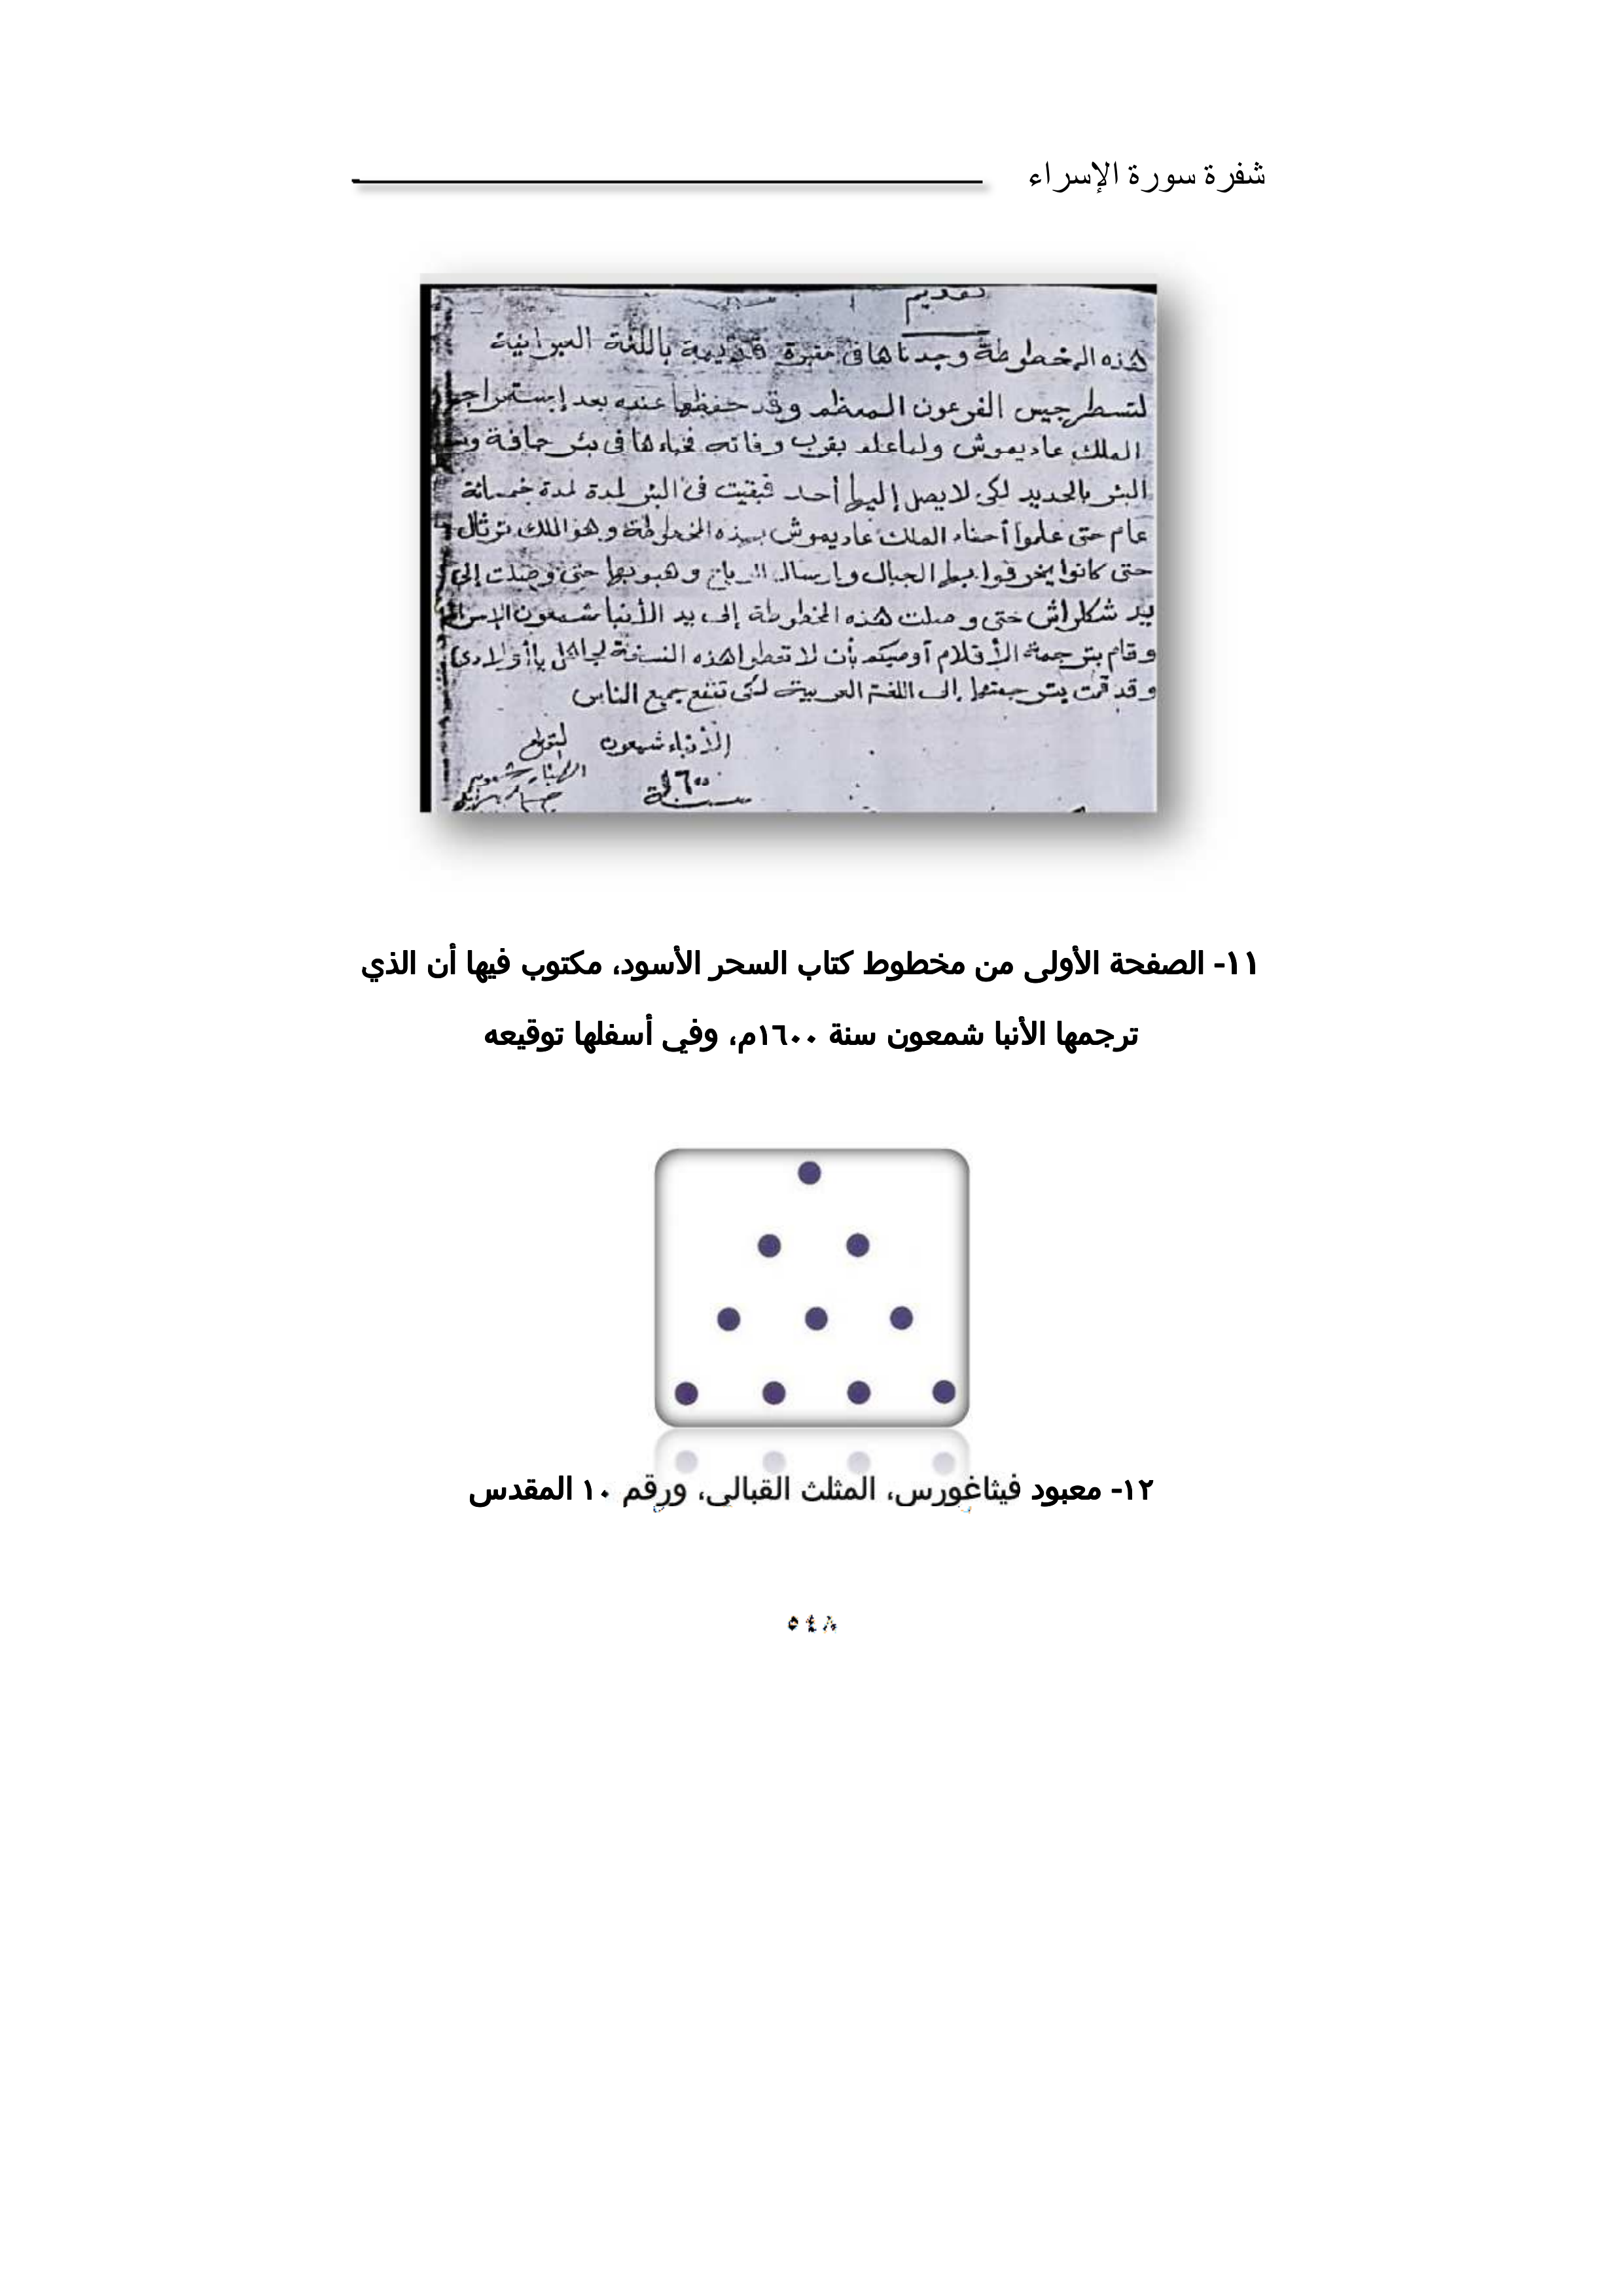 شفرة سورة الإسراء
تقديم
هذه المخطوطة وجدناها فى مقبرة قديمة باللغة العبرانية
لتسطرجيس الفرعون المعظم وقد حفظها عنده بعد إستمراجه
الملك عاديموش ولما علم بقرب وفاته فخباءها فى بئر جافة
البئر بالحديد لكى لا يصل إليها أحد فبقيت فى البئر لمدة لمدة خمسائة
عام حتى علموا أحفاء الملك عاديموش بهذه المخطوطة وهو الملك
حتى كانوا يخرقوا بها الجبال وارسال الرياح وهبوبها حتى وصلت إلى
يد شكلراش حتى وصلت هذه المخطوطة إلى يد الأنبا شمعون
وقام بترجمة الأقلام أوصيكم بأن لا تعطوا هذه النسخة لجاهل ياأولادى
وقد قمت بترجمتها إلى اللغة العربية لكى تنفع جميع الناس
الأنباء شمعون
سنة ١٦٠٠
١١- الصفحة الأولى من مخطوط كتاب السحر الأسود، مكتوب فيها أن الذي
ترجمها الأنبا شمعون سنة ١٦٠٠م، وفي أسفلها توقيعه
١٢- معبود فيثاغورس، المثلث القبالي، ورقم ١٠ المقدس
٥٤٨